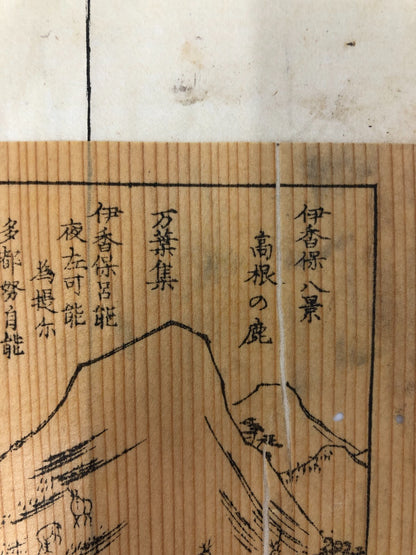 伊香保八景
高根の鹿
万葉集
伊香保呂能
夜左可能
為提尓
多都努自能